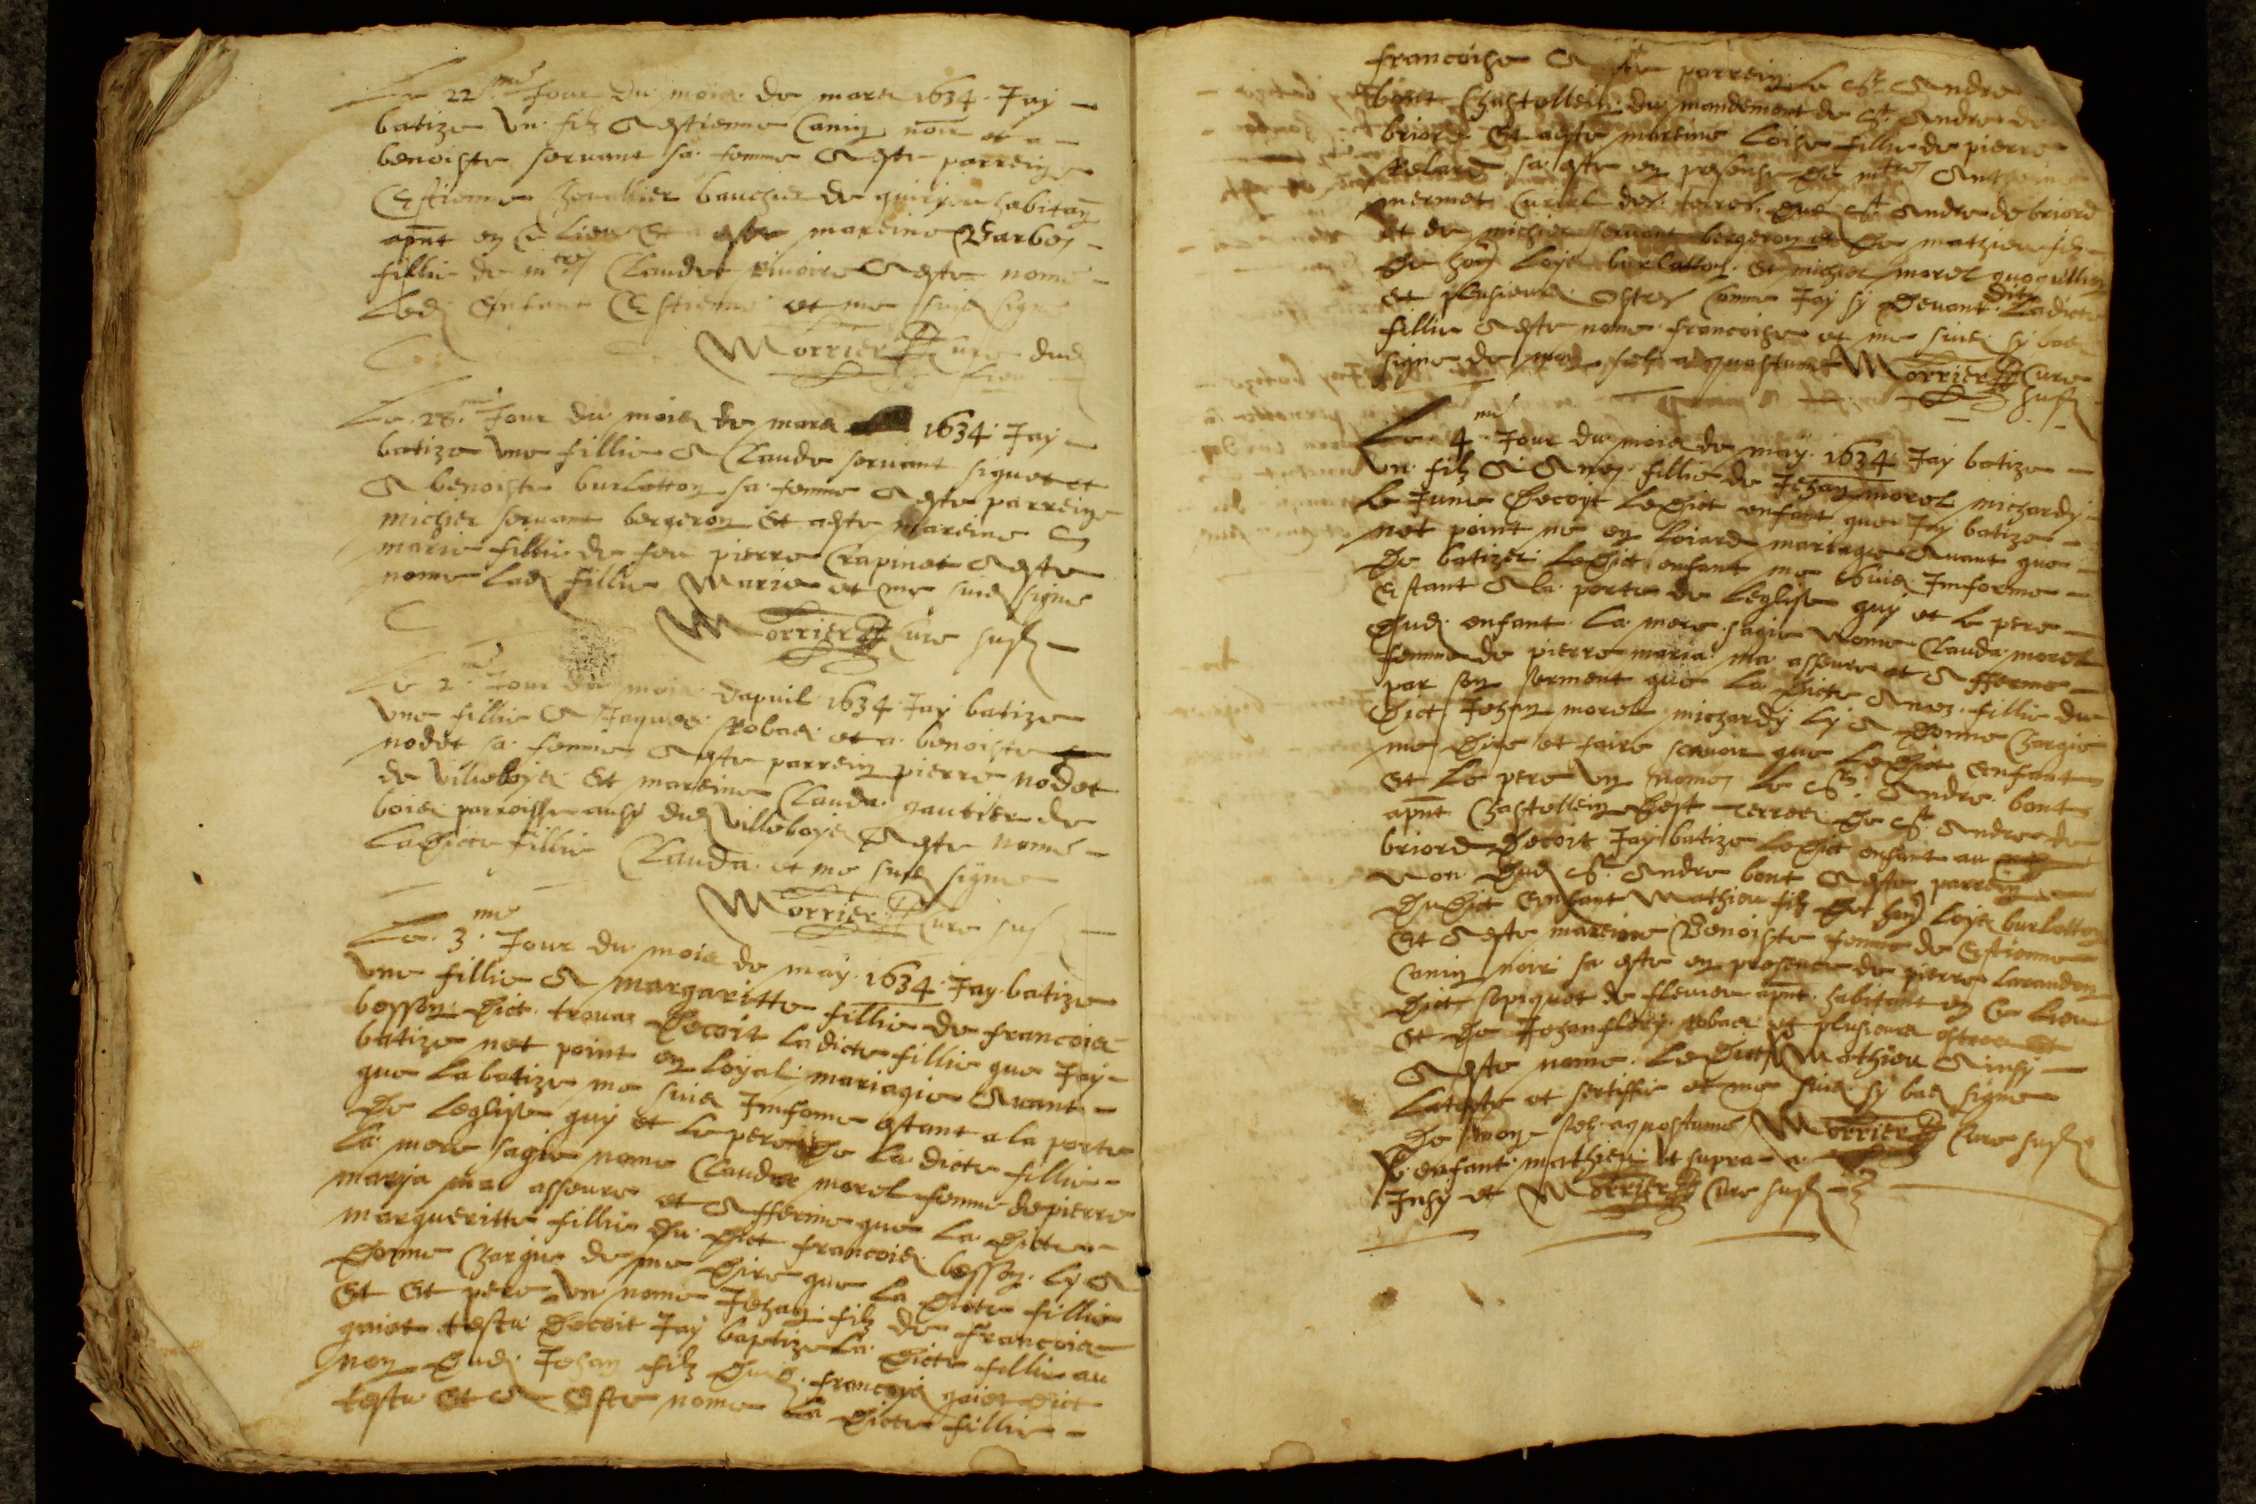 Le 22me Jour du mois de mars 1634 Jay
batize un filz A estienne Canin noir et a
benoiste servant sa femme A este parrein
Estienne Chevallier bauchie de quirieu habitan
apnt en ce lieu Et a este mareine Barbe
fillie de mtre Claude A este nome
Led Enfant Estienne et me suis signe
Morrier Cure dud
lieu
Le 28me Jour du mois de mars 1634 Jay
batize une fillie A Claude servant signet et
A benoiste burlatton sa femme A este parrein
michiel servant bergeron Et a este mareine
marie fillie de feu pierre Crapinet A este
nome lad fillie Marie et me suis signe
Morrier Cure sus
Le 2me Jour du mois dapvril 1634 Jay batize
une fillie A Jaques Robas et a benoiste
nodet sa femme A este parrein pierre nodet
de villeboys Et mareine Clauda gautier de
bois parroisse aussy dud villeboys A este nome
Ladicte fillie Clauda et me suis signe
Morrier Cure sus
Le 3me Jour du mois de may 1634 Jay batize
une fillie A margaritte fillie de francois
bosson dict trouas decoit ladicte fillie que Jay
batize net point en loyal mariagie Avant
que la batize me suis Imfome estant a la porte
de leglise quy et le pere de la dicte fillie
la mere sagie nome Claudaz morel femme de pierre
marya ma asseure et Afferme que la dicte
margueritte fillie du dict francois bosson ly A
donne charge de me dire que la dicte fillie
Et Et pere un nome Jehan filz de francois
goiet testu decoit Jay baptize la dicte fillie au
non dud Jehan filz dud francoys goiet dict
testu Et A Este nome la dicte fillie
francoise A este parrein le Sr Andre
bont Chastellein du mandement de St Andre de
briord Et a este mareine Loise fillie de pierre
Relard sa este en presense de mtre Anthoine
mermet Curial des terres dud St Andre de briord
et de michiel servant bergeron et de mathieu filz
de hon Loys burlatton Et michiel morel quoquillin
Et plusieurs Ostres Comme Jay sy devant dit Ladicte
fillie A este nome francoise et me suis sy bas
signe de mon sel aquostume Morrier Cure
sus
Le 4me Jour du mois de may 1634 Jay batize
un filz A Anez fillie de Jehan morel michardy
le Jeune decoit ledict enfant que Jay batize
net point ne en loiard mariage Avant que
de batizer ledict enfant me suis Imforme
Estant A la porte de leglise quy et le pere
dud enfant la mere sagie nome Clauda morel
femme de pierre maria ma asseure et Afferme
par son serment que la dicte Anez fillie du
dict Jehan morel michardy ly A donne chargie
me dire et faire scavoir que ledict Enfant
Et le pere un nome le Sr Andre bont
apnt Chastellein dest terres de St Andre de
briord decoit Jay batize ledict enfant au
non dud Sr Andre bont A este parrein
dudict Enfant Mathieu filz de hon Loys burlatton
Et A este mareine Benoiste femme de Estienne
Canin noir sa este en presence de pierre Lavandon
dict sopiquet de fleuriu apnt habitant en ce lieu
et de Jehan flory robas et plusieurs ostres
A este nome ledict Mathieu Ainsy
lateste et sertiffie et me suis sy bas signe
de mon sel aquostume Morrier Cure sus
enfant mathieu Ut supra a
Insy et Morrier Cure sus